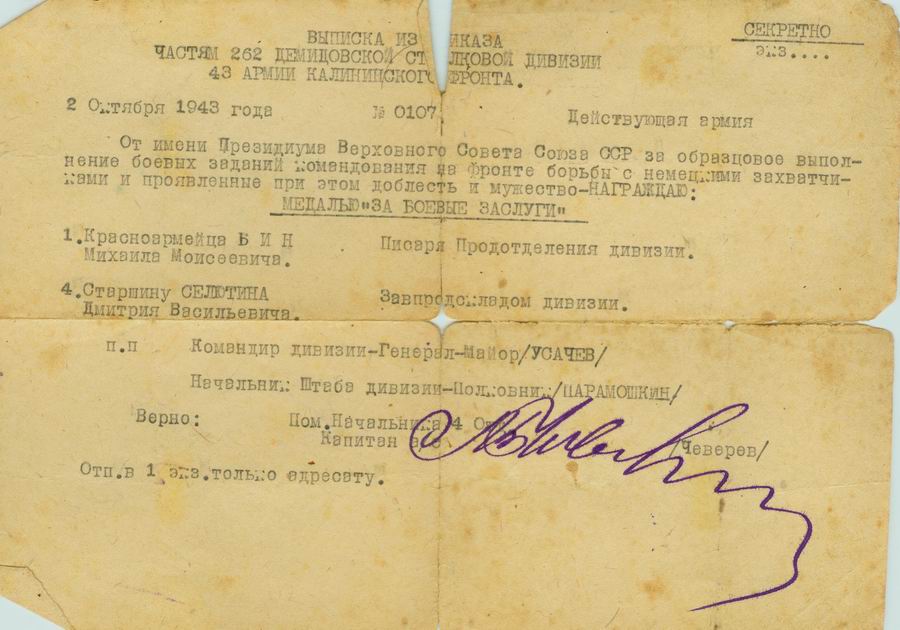 СЕКРЕТНО
экз....
ВЫПИСКА ИЗ ИКАЗА
ЧАСТЯМ 262 ДЕМИДОВСКОЙ СТ ЛКОВОЙ ДИВИЗИИ
43 АРМИИ КАЛИНИЦСКОГО ФРОНТА.
2 Октября 1943 года № 0107 Действующая армия
От имени Президиума Верховного Совета Союза ССР за образцовое выпол-
нение боевых заданий командования на фронте борьбы с немецкими захватчи-
ками и проявленные при этом доблесть и мужество-НАГРАЖДАЮ:
МЕДАЛЬЮ"ЗА БОЕВЫЕ ЗАСЛУГИ"
1.Красноармейца Б И Н Писаря Продотделения дивизии.
Михаила Моисеевича.
4.Старшину СЕЛЮТИНА Завпродскладом дивизии.
Дмитрия Васильевича.
п.п Командир дивизии-Генерал-Майор/УСАЧЕВ/
Начальник Штаба дивизии-Полковник/ПАРАМОШКИН/
Верно: Пом.Начальника 4 От
Капитан а/с /Чеверев/
Отп.в 1 экз.только адресату.